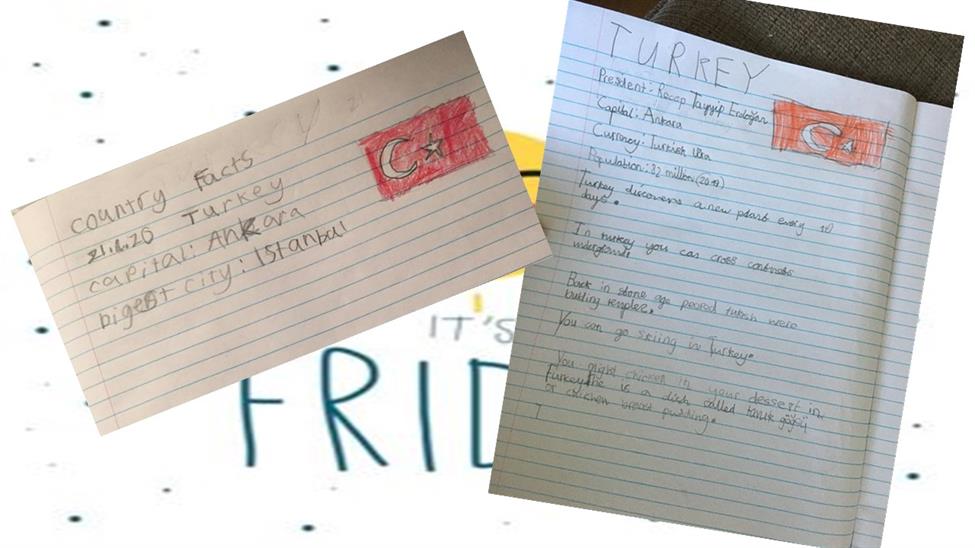 country Facts
21.1.20 Turkey
capital: Ankara
bigest city: Istanbul
TURKEY
President: Recep Tayyip Erdoğan
Capital: Ankara
Currency: Turkish lira
Population: 82 million (2019)
Turkey discovers a new plant every 10
days.
In turkey you can cross continents
underground.
Back in stone age peored turish were
building temples.
You can go skiing in Turkey.
You might chicken in your dessert in
Turkey. the is a dish called tavuk göğsü
or chicken breast pudding.
T
IT'S
FRID